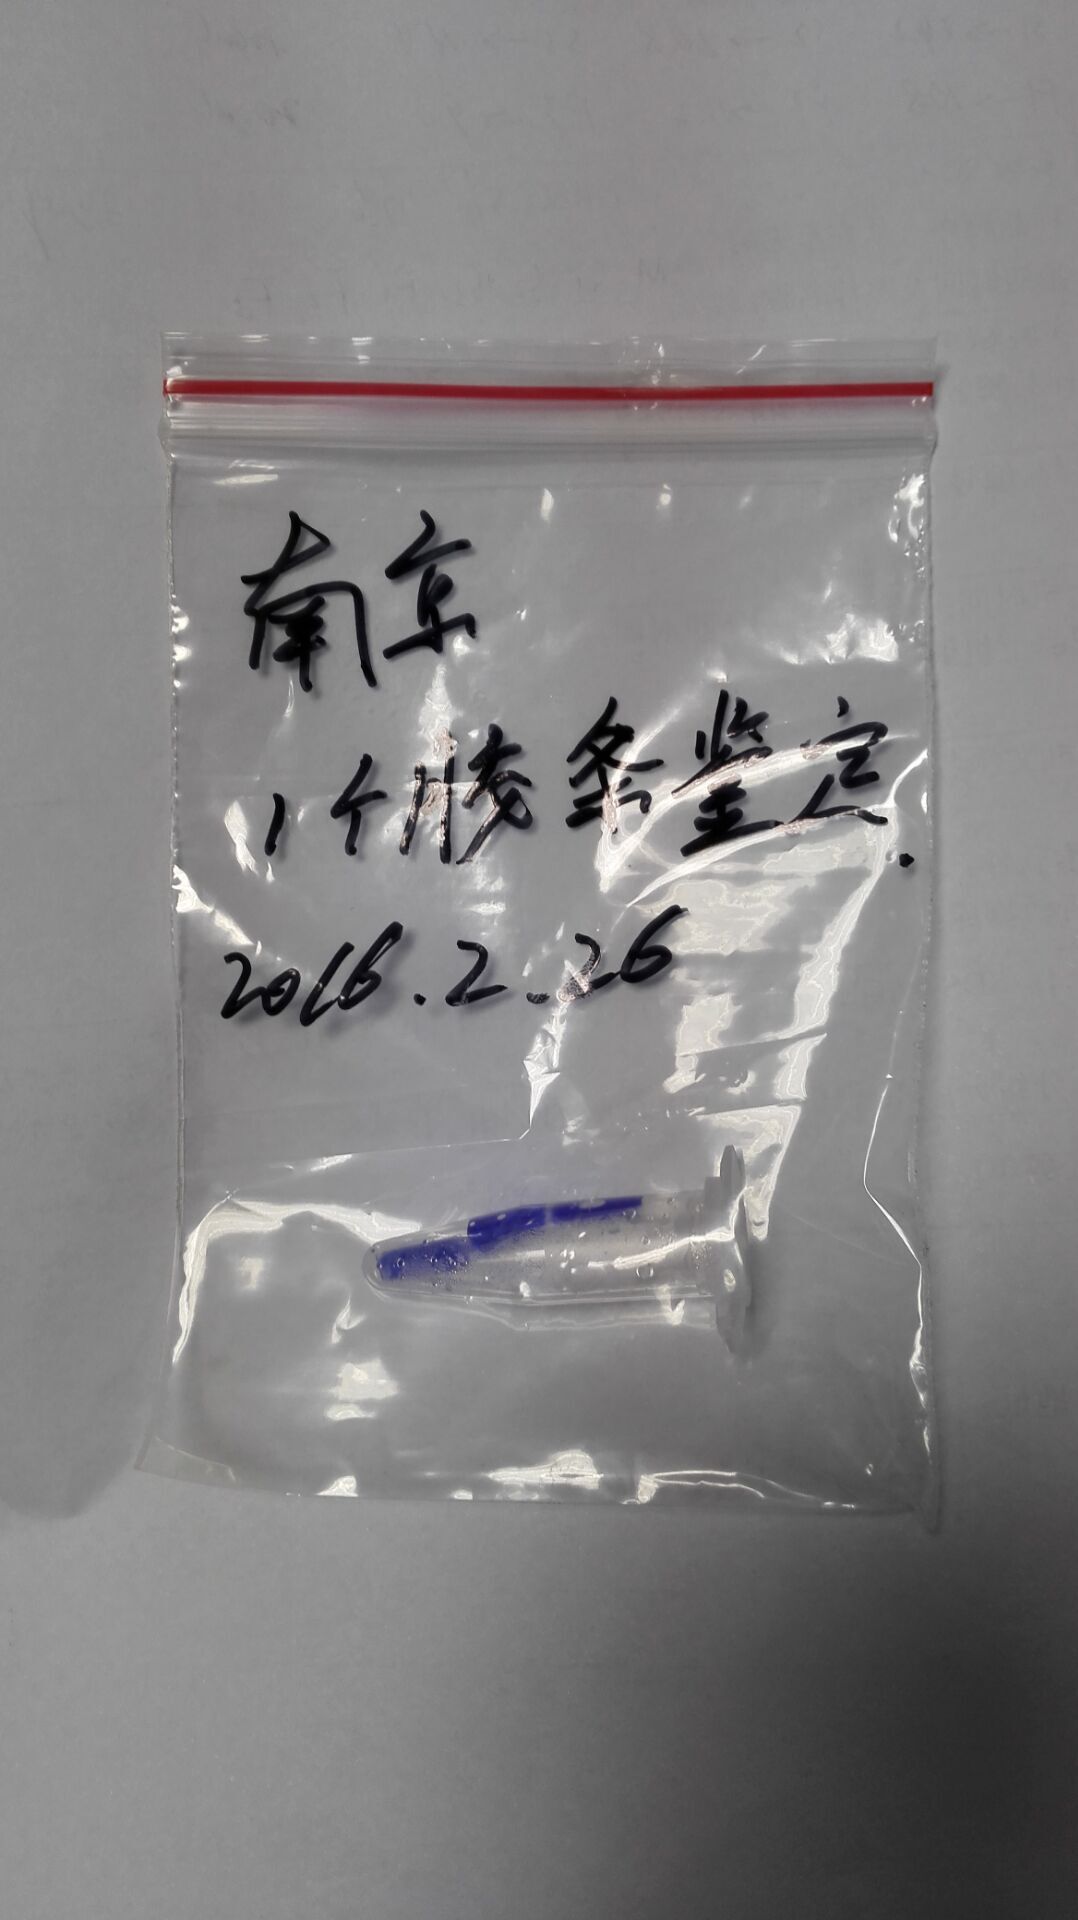 南京
1个胶条鉴定.
2016.2.26